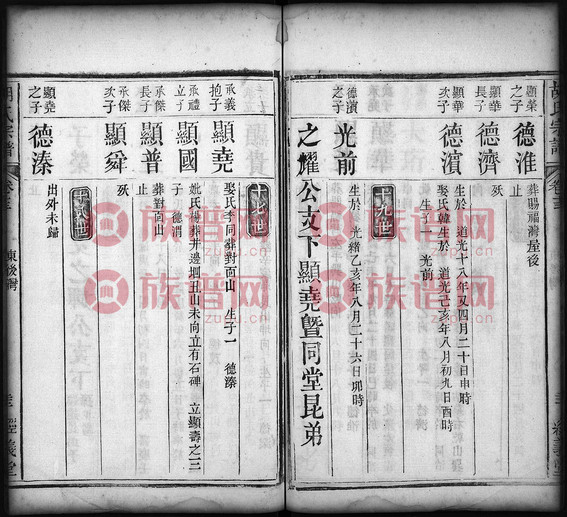 胡氏宗譜
卷三
顯榮之子
德淮
葬賜福灣屋後
止
顯華長子
德濟
殀
顯華次子
德濱
生於道光十八年又四月二十日申時
娶氏韓生於道光己亥年八月初九日酉時
生子一 光前
十九世
德濱之子
光前
生於光緒乙亥年八月二十六日卯時
之耀公支下顯堯暨同堂昆弟
十七世
承義抱子
顯堯
娶氏李同葬對面山 生子一 德溱
承禮立子
顯國
妣氏楊葬井邊堋丑山未向立有石碑 立顯壽之二
子 德渭
承傑長子
顯普
葬對面山
止
承傑次子
顯舜
殀
十八世
顯堯之子
德溱
出外未歸
胡氏宗譜
卷三
東後灣
經義堂
族谱网
zupu.cn
族谱网
zupu.cn
族谱网
zupu.cn
族谱网
zupu.cn